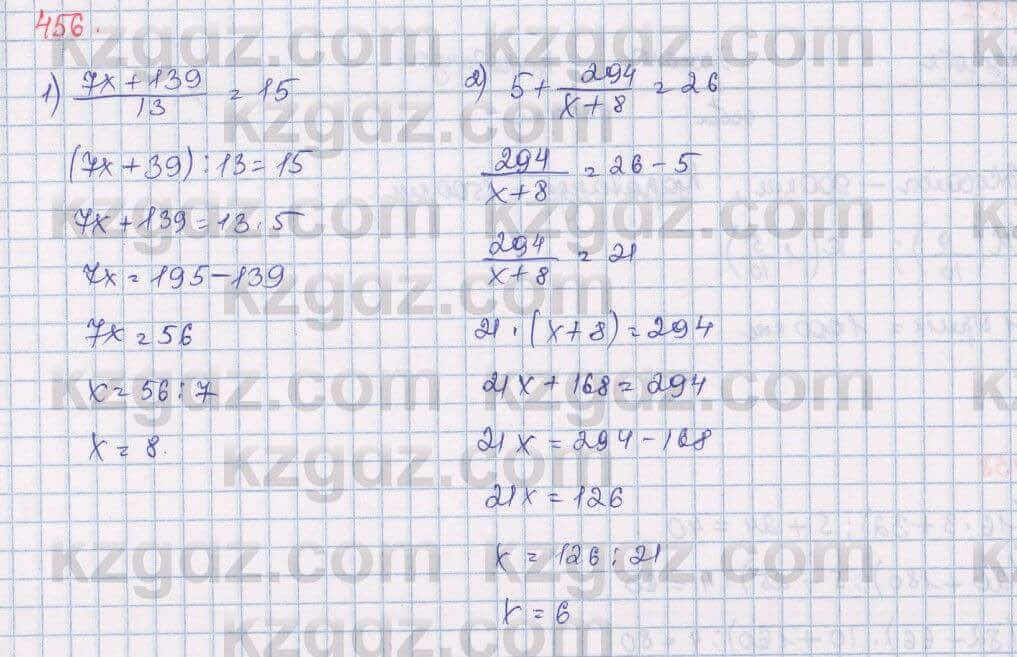 456.
1) (7x+139)/13 = 15
(7x+39):13=15
7x+139=13·5
7x=195-139
7x=56
x=56:7
x=8.
2) 5+294/(x+8)=26
294/(x+8)=26-5
294/(x+8)=21
21·(x+8)=294
21x+168=294
21x=294-168
21x=126
x=126:21
x=6
kzgdz.com